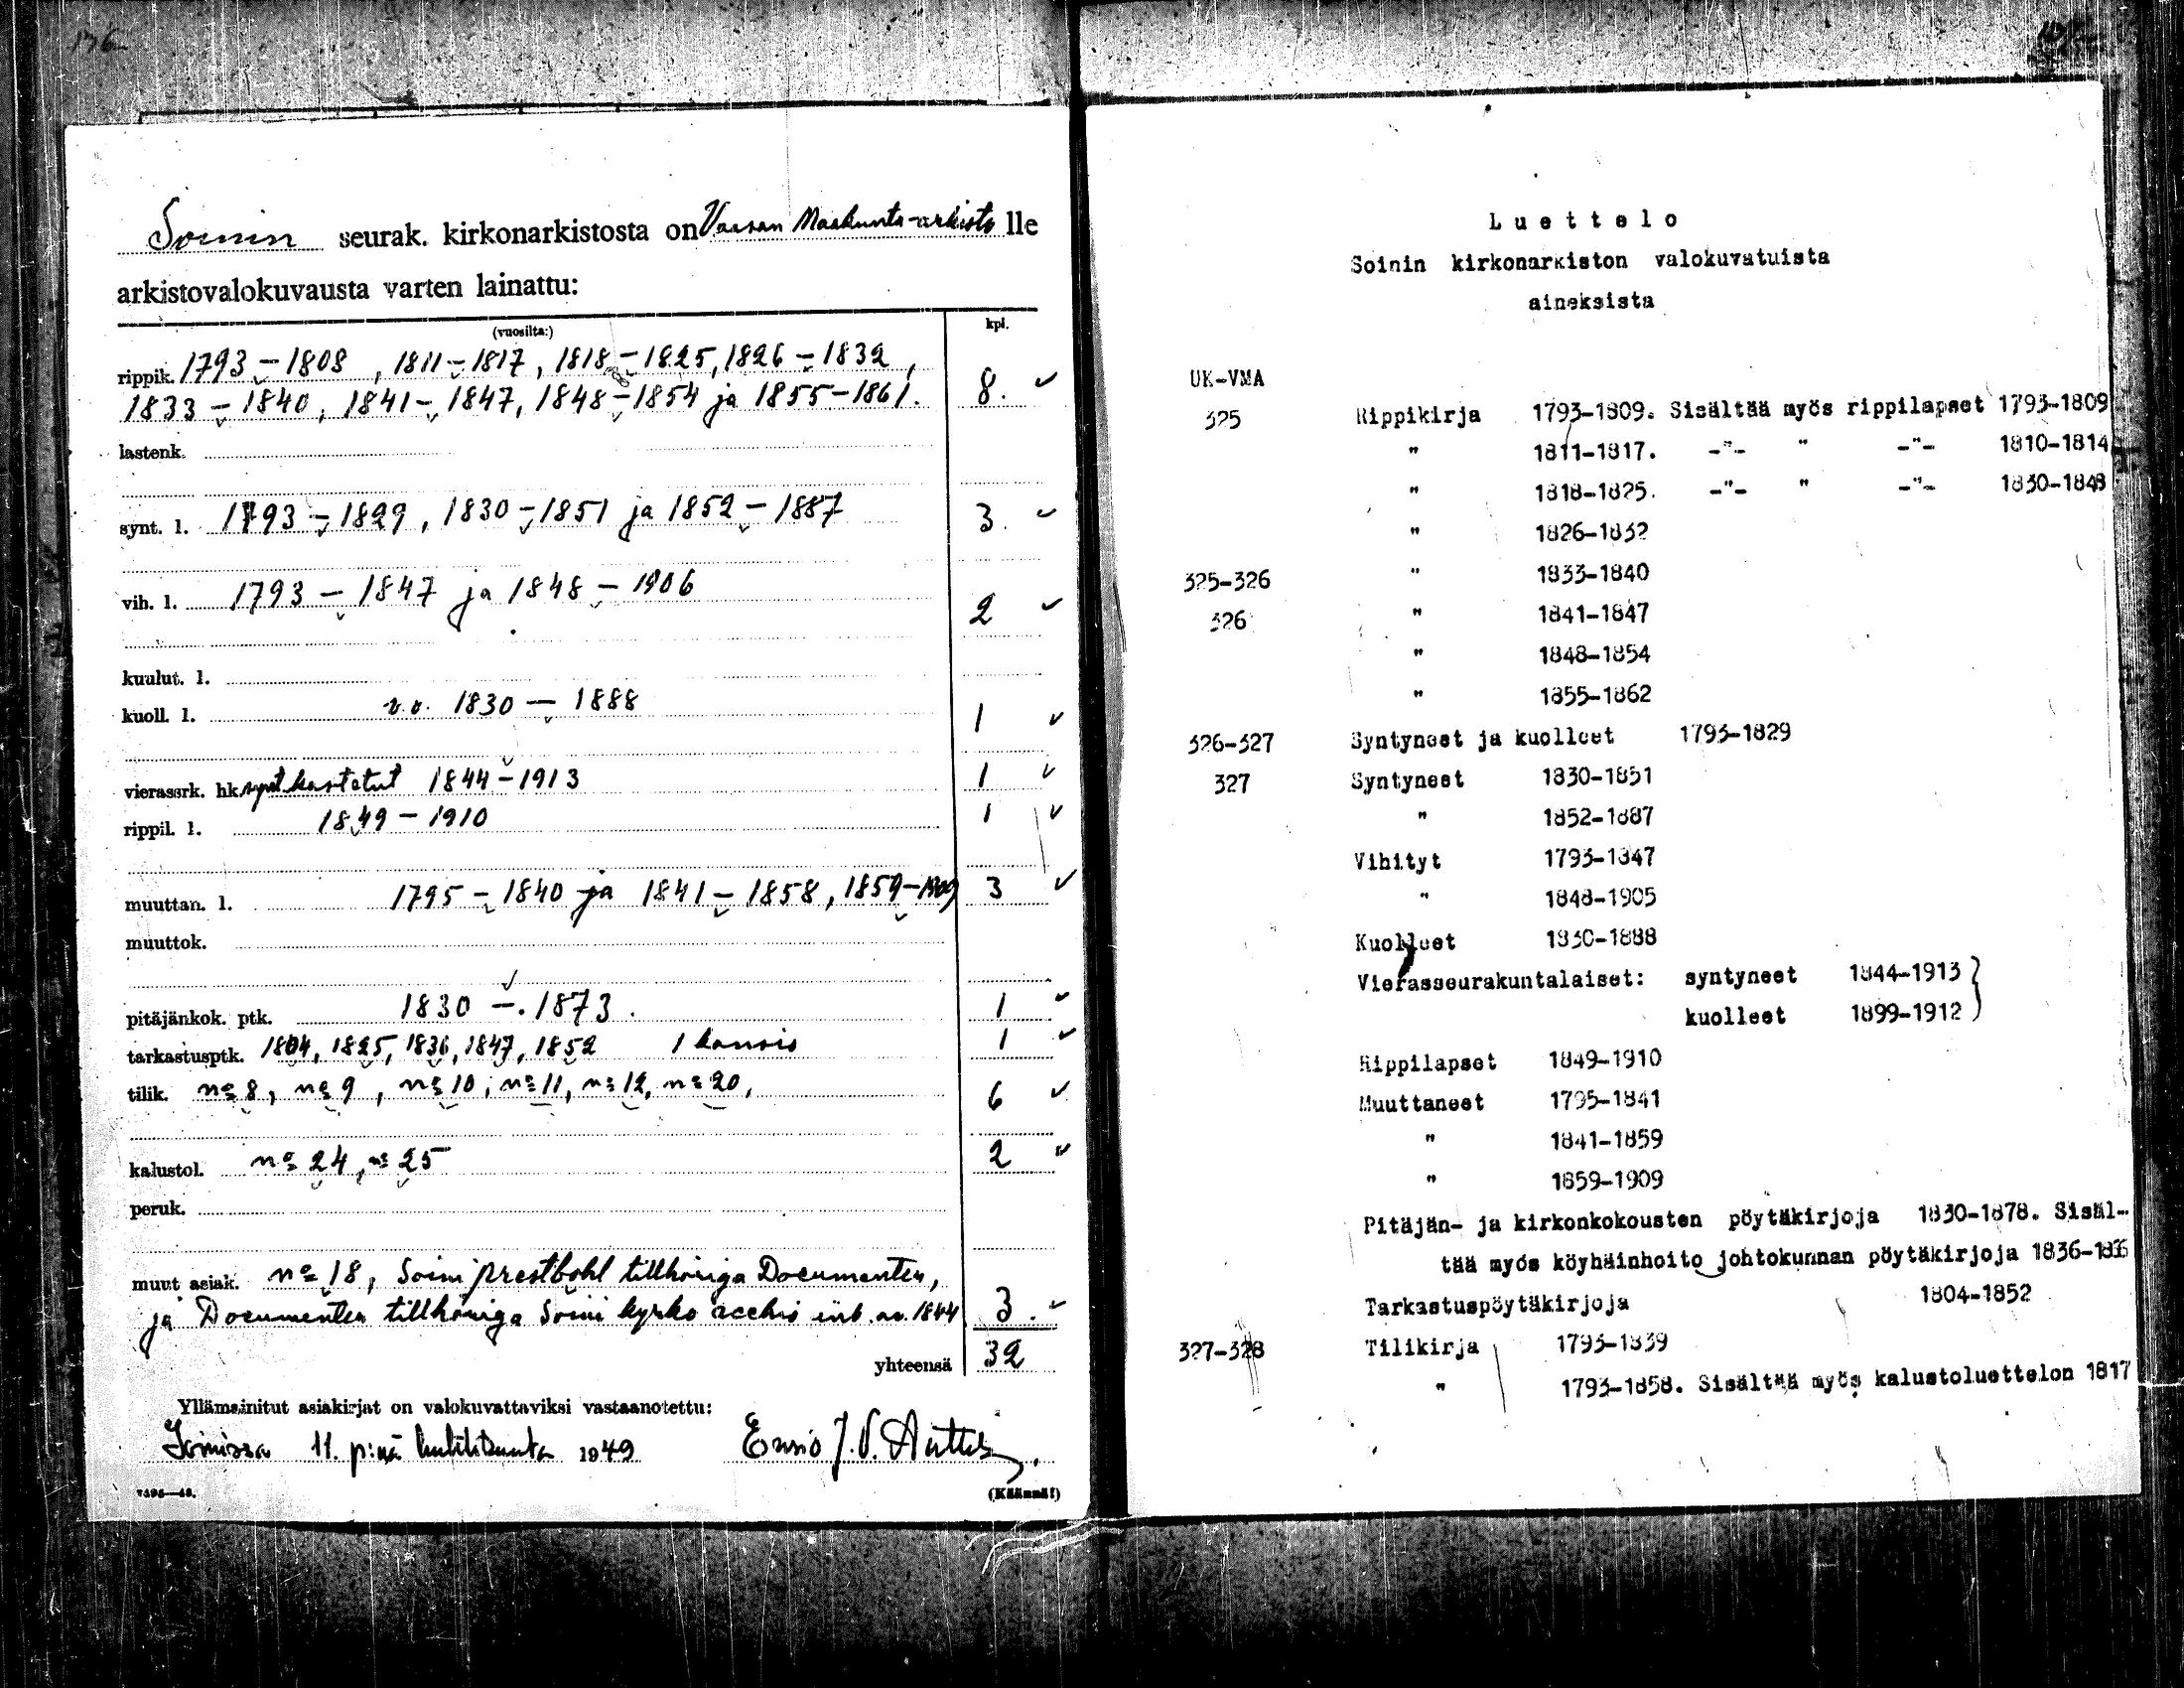 136
Soinin seurak. kirkonarkistosta on Vaasan Maakunta-arkisto lle
arkistovalokuvausta varten lainattu:
(vuosilta:) kpl.
rippik. 1793 – 1808, 1811 – 1817, 1818 – 1825, 1826 – 1832,
1833 – 1840, 1841 – 1847, 1848 – 1854 ja 1855 – 1861. 8. ✓
lastenk.
synt. l. 1793 – 1829, 1830 – 1851 ja 1852 – 1887 3. ✓
vih. l. 1793 – 1847 ja 1848 – 1906 2 ✓
kuulut. l.
kuoll. l. v.v. 1830 – 1888 1 ✓
vierassrk. hk. synt. kastetut 1844 – 1913 1 ✓
rippil. l. 1849 – 1910 1 ✓
muuttan. l. 1795 – 1840 ja 1841 – 1858, 1859 – 1909 3 ✓
muuttok.
pitäjänkok. ptk. 1830 – 1873. 1 ✓
tarkastusptk. 1804, 1825, 1836, 1847, 1852 1 kansio 1 ✓
tilik. nº 8, nº 9, nº 10, nº 11, nº 12, nº 20, 6 ✓
kalustol. nº 24, nº 25 2 ✓
peruk.
muut asiak. nº 18, Soini prestbohl tillhöriga Documenter,
ja Documenter tillhöriga Soini kyrko 1844 3. ✓
yhteensä 32
Yllämainitut asiakirjat on valokuvattaviksi vastaanotettu:
Soinissa 11. p:nä huhtikuuta 1949 Ensio J. V.
(Käännä!)
Luettelo
Soinin kirkonarkiston valokuvatuista
aineksista
UK-VMA
325 Rippikirja 1793-1809. Sisältää myös rippilapset 1793-1809
" 1811-1817. -"- " -"- 1810-1814
" 1818-1825. -"- " -"- 1830-1848
" 1826-1832
325-326 " 1833-1840
326 " 1841-1847
" 1848-1854
" 1855-1862
326-327 Syntyneet ja kuolleet 1793-1829
327 Syntyneet 1830-1851
" 1852-1887
Vihityt 1793-1847
" 1848-1905
Kuolleet 1830-1888
Vierasseurakuntalaiset: syntyneet 1844-1913 }
kuolleet 1899-1912
Rippilapset 1849-1910
Muuttaneet 1795-1841
" 1841-1859
" 1859-1909
Pitäjän- ja kirkonkokousten pöytäkirjoja 1830-1878. Sisäl-
tää myös köyhäinhoito johtokunnan pöytäkirjoja 1836-
Tarkastuspöytäkirjoja 1804-1852
327-328 Tilikirja 1793-1839
" 1793-1858. Sisältää myös kalustoluettelon 1817